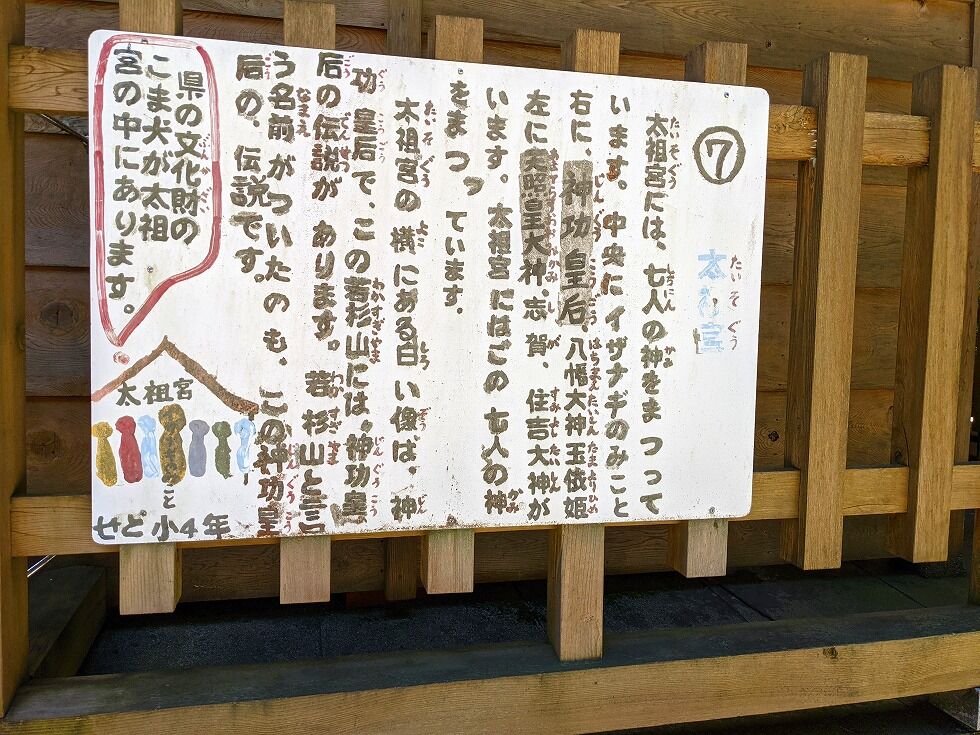 ⑦
太祖宮
太祖宮には、七人の神をまつって
います。中央にイザナギのみこと
右に 神功皇后、八幡大神玉依姫
左に天照皇大神志賀、住吉大神が
います。太祖宮にはこの七人の神
をまつっています.
太祖宮の横にある白い像は、神
功皇后で、この若杉山には、神功皇
后の伝説が あります。若杉山と言
う名前がついたのも、この神功皇
后の、伝説です。
県の文化財の
こま犬が太祖
宮の中にあります。
太祖宮
せと小4年